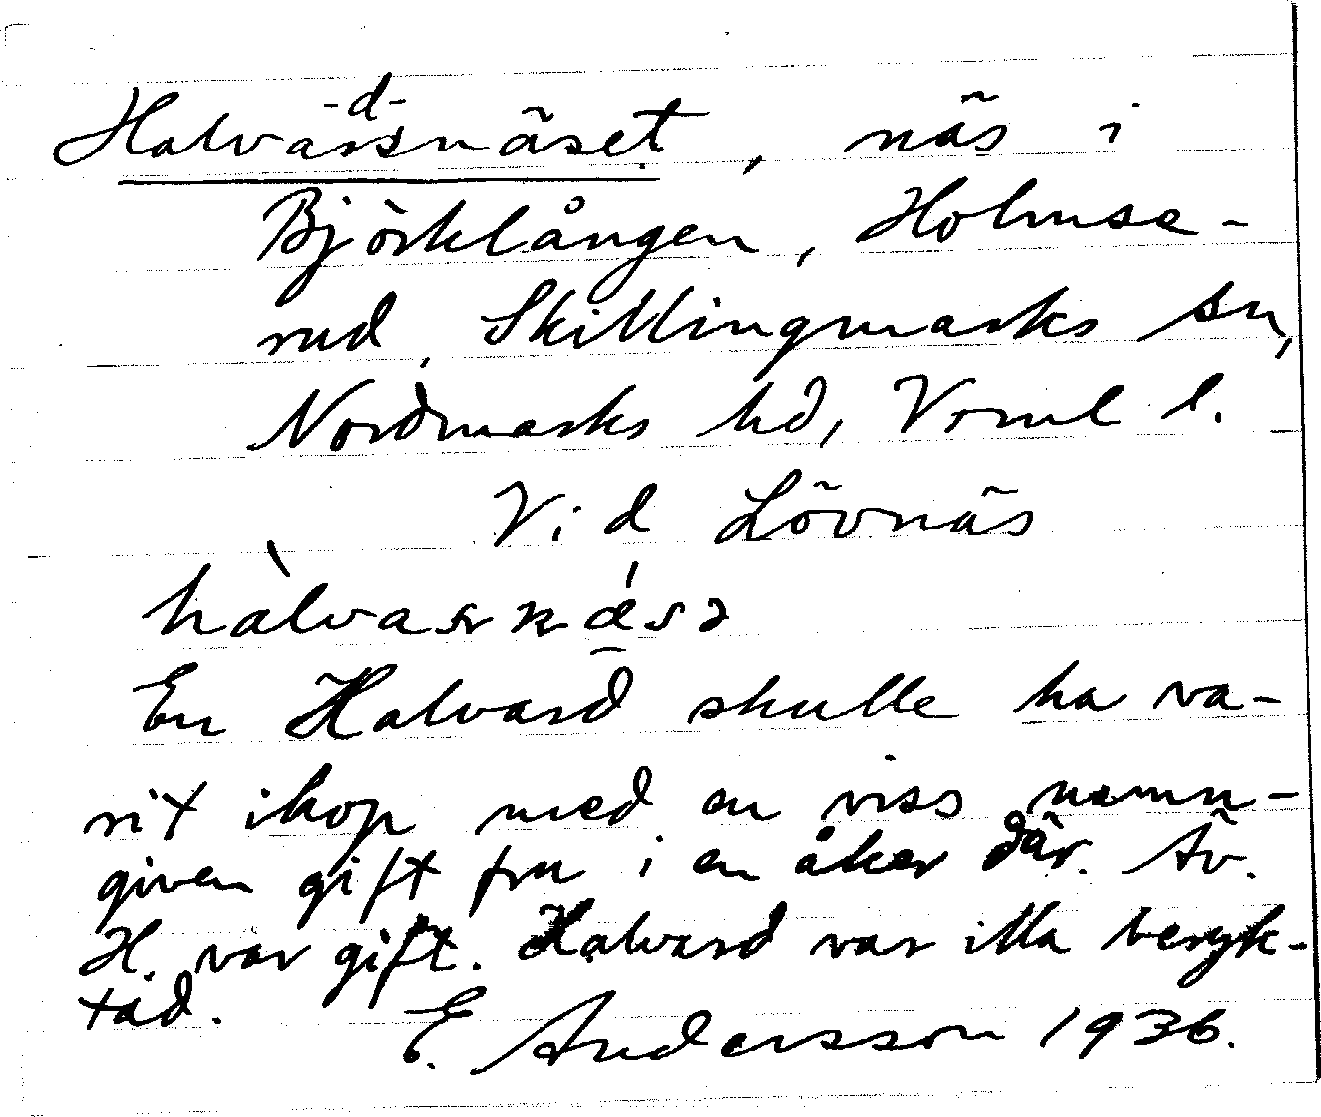 -d-
Halvarsnäset, näs i
Björklången, Holmse-
rud, Skillingmarks sn,
Nordmarks hd, Vrml l.
Vid Lövnäs
En Halvard skulle ha va-
rit ihop med en viss namn-
given gift fru i en åker där. Äv.
H. var gift. Halvard var illa beryk-
tad.
E. Andersson 1936.